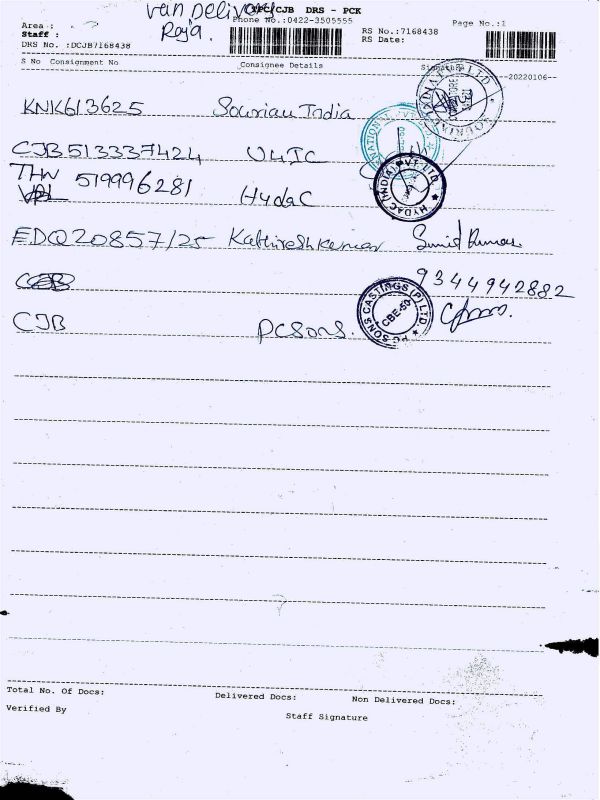 van Delivery
TPC/CJB DRS - PCK
Raja.
Area :
Phone No.:0422-3505555
Page No.:1
Staff :
RS No.:7168438
DRS No. :DCJB7168438
RS Date:
S No Consignment No Consignee Details Signature
20220106
KNK613625 Souriau India
CJB513337424 U4IC
THW 519996281 Hydac
HYDAC (INDIA) PVT. LTD.
EDQ20857/25 Kathireshkumar Sumit Kumar
9344942882
CJB PCSons.
PC SONS CASTINGS (P) LTD.
CBE-50
Total No. Of Docs: Delivered Docs: Non Delivered Docs:
Verified By
Staff Signature